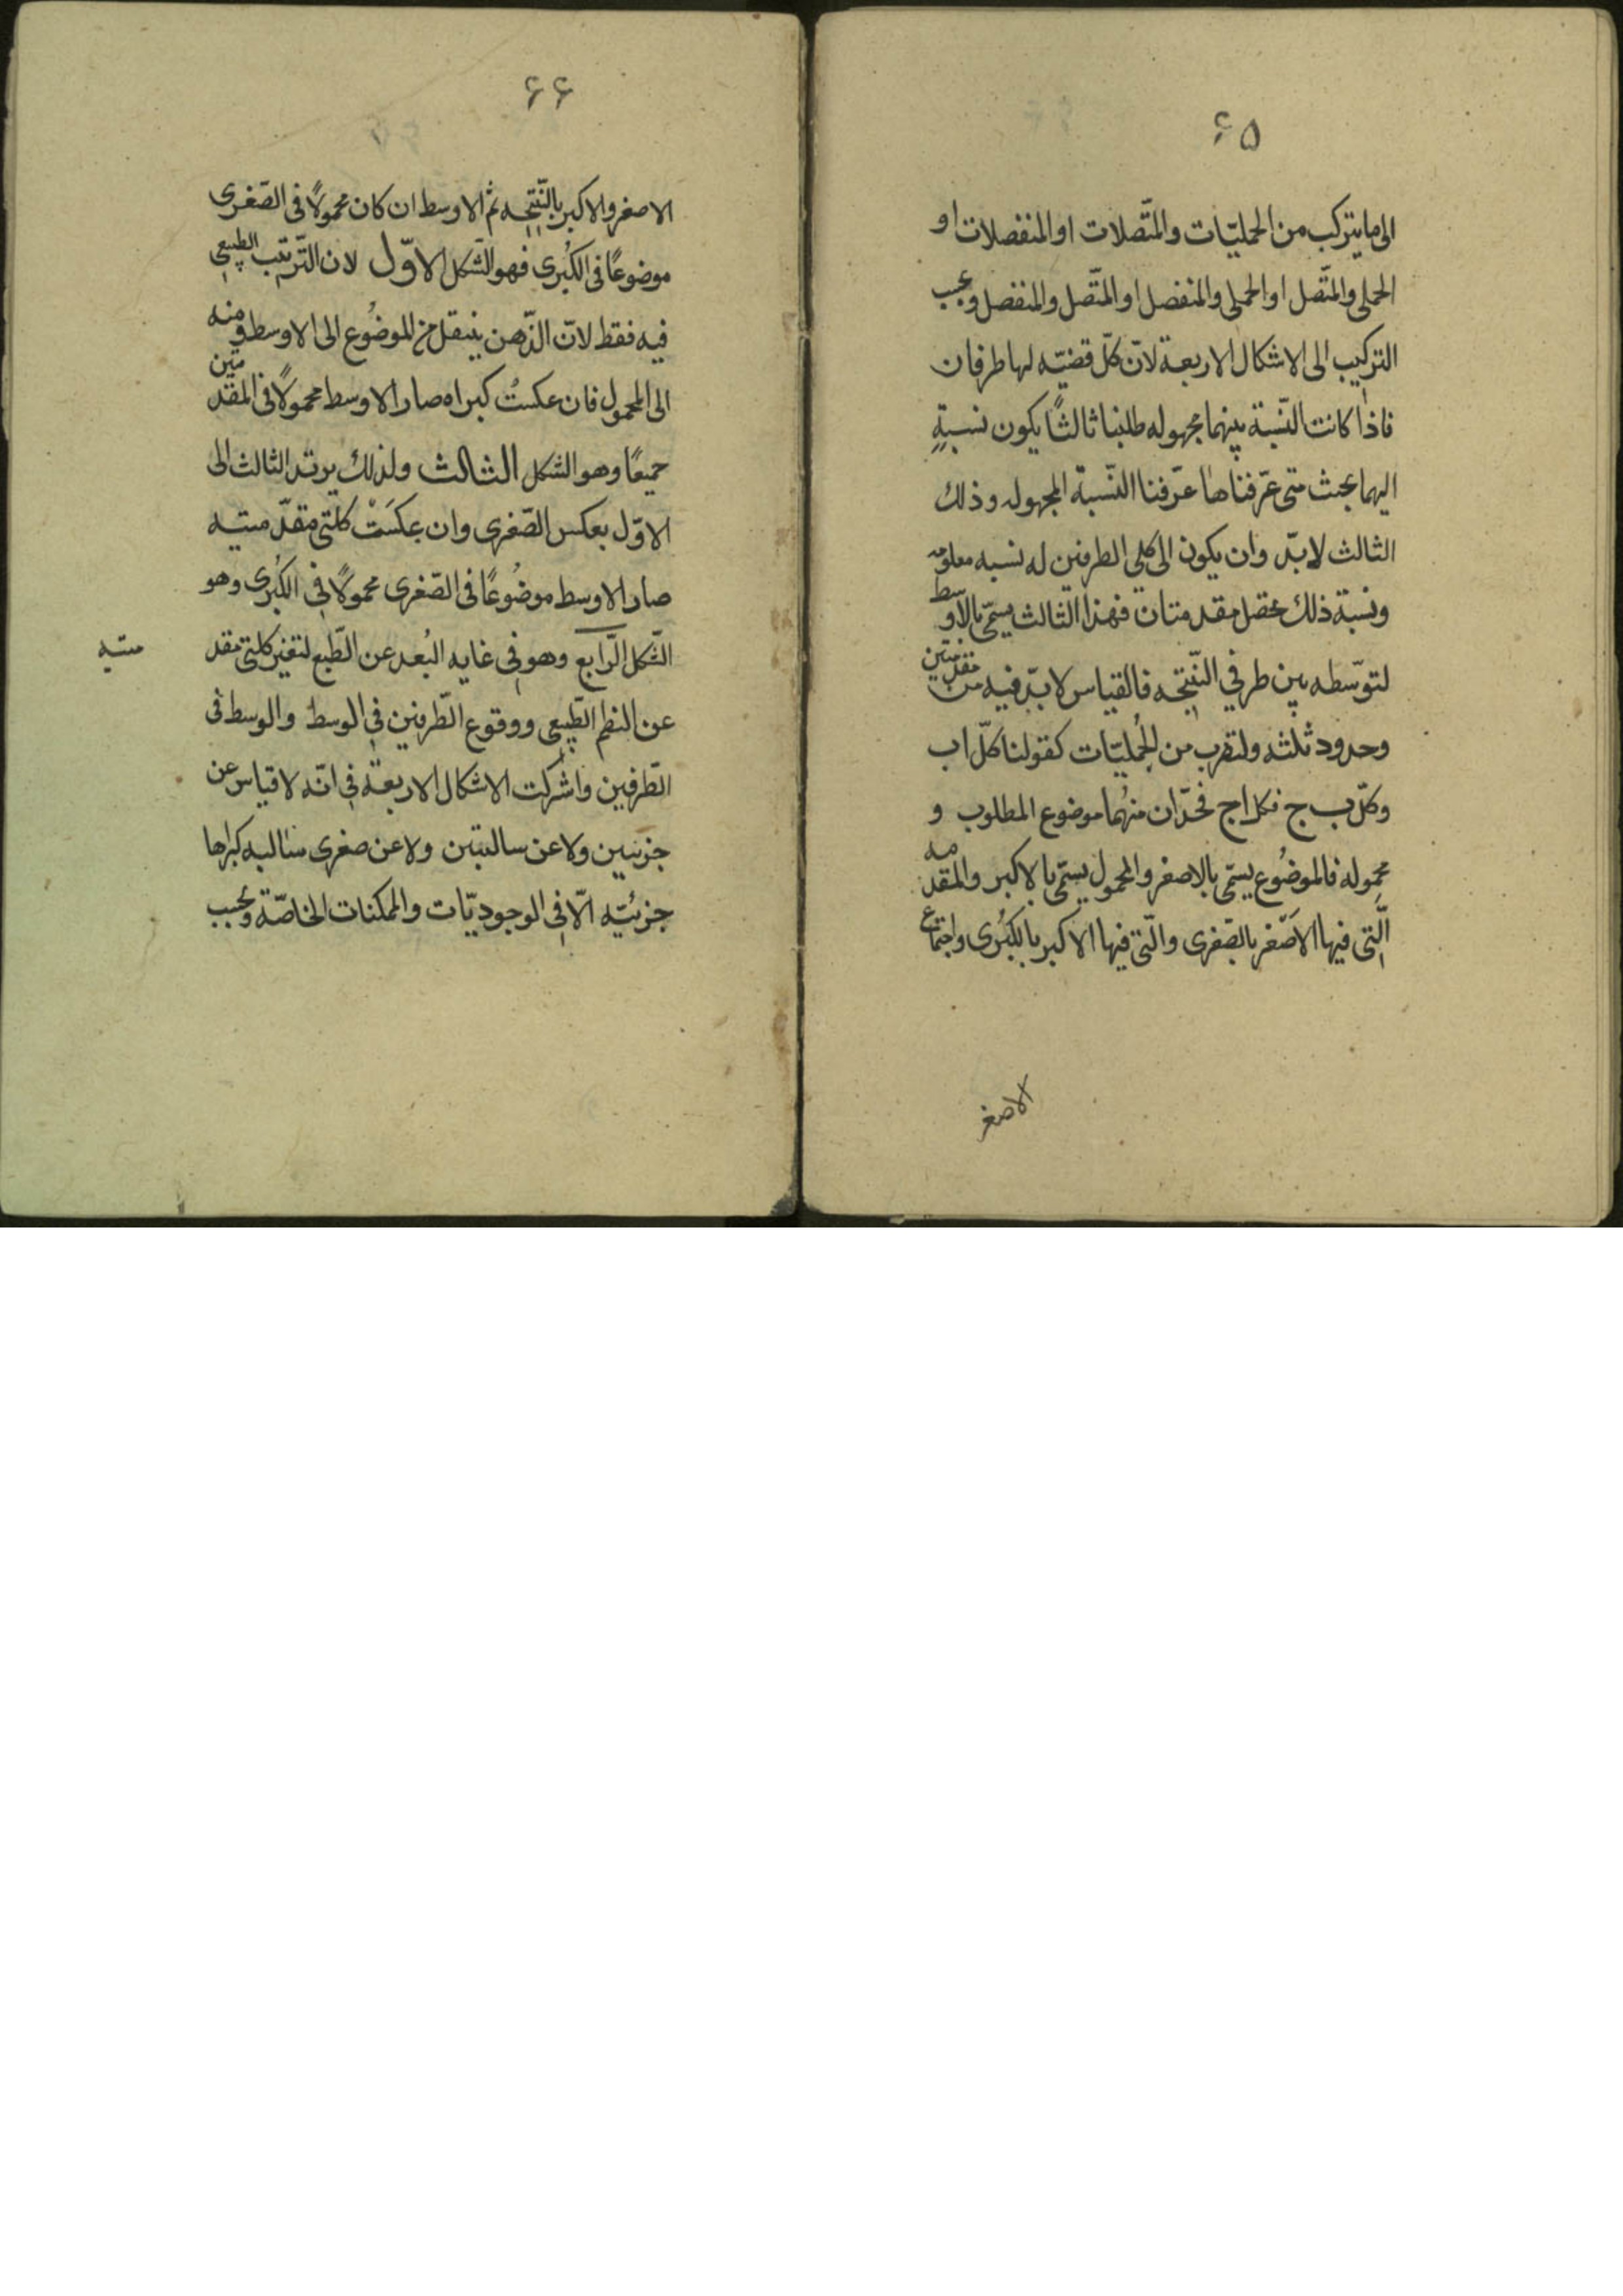 ۶۵
الی ما یترکب من الحملیّات والمتّصلات او المنفصلات او
الحملی والمتّصل او الحملی والمنفصل او المتّصل والمنفصل وبحسب
الترکیب الی الاشکال الاربعة لانّ کلّ قضیّه لها طرفان
فاذا کانت النّسبة بینهما مجهوله طلبنا ثالثًا یکون نسبةٍ
الیهما بحیث متی عرّفناها عرّفنا النّسبة المجهوله وذلك
الثالث لابدّ وان یکون الی کلی الطرفین له نسبه معلومه
ونسبة ذلك تحصل مقدمتان فهذا الثالث یسمّی بالاوسط
لتوسّطه بین طرفی النّتیجه فالقیاس لابدّ فیه من مقدمتین
وحدود ثلثه ولتقرب من الحُملیّات کقولنا کلّ اب
وکلّ ب ج فکل اج فحدّان منهُما موضوع المطلوب و
محموله فالموضُوع یسمّی بالاصغر والمحمول یسمّی بالاکبر والمقدمه
الّتی فیها الاَصّغر بالصّغری والّتی فیها الاکبر بالکبُری واجتماع
الاصغر
۶۶
الاصغر والاکبر بالنّتیجه ثم الاوسط ان کان محمولًا فی الصّغری
موضوعًا فی الکبُری فهو الشّکل الاوّل لان التّرتیب الطبیعی
فیه فقط لانّ الذّهن ینتقل من الموضُوع الی الاوسط ومنه
الی المحمول فان عکستُ کبراه صار الاوسط محمولًا فی المقدمتین
جمیعًا وهو الشکل الثالث ولذلك یرتد الثالث الی
الاوّل بعکس الصّغری وان عکسَتْ کلتی مقدّمتیه
صار الاوسط موضُوعًا فی الصّغری محمولًا فی الکبُری وهو
الشّکل الرّابع وهو فی غایه البُعد عن الطّبع لتغیر کلتی مقد
متیه
عن النظم الطّبیعی ووقوع الطّرفین فی الوسط والوسط فی
الطّرفین واشرکت الاشکال الاربعة فی انّه لا قیاس عن
جزئیین ولا عن سالبتین ولا عن صغری سالبه کبراها
جزئیّه الّا فی الوجودیّات والممکنات الخاصّة وبحسب